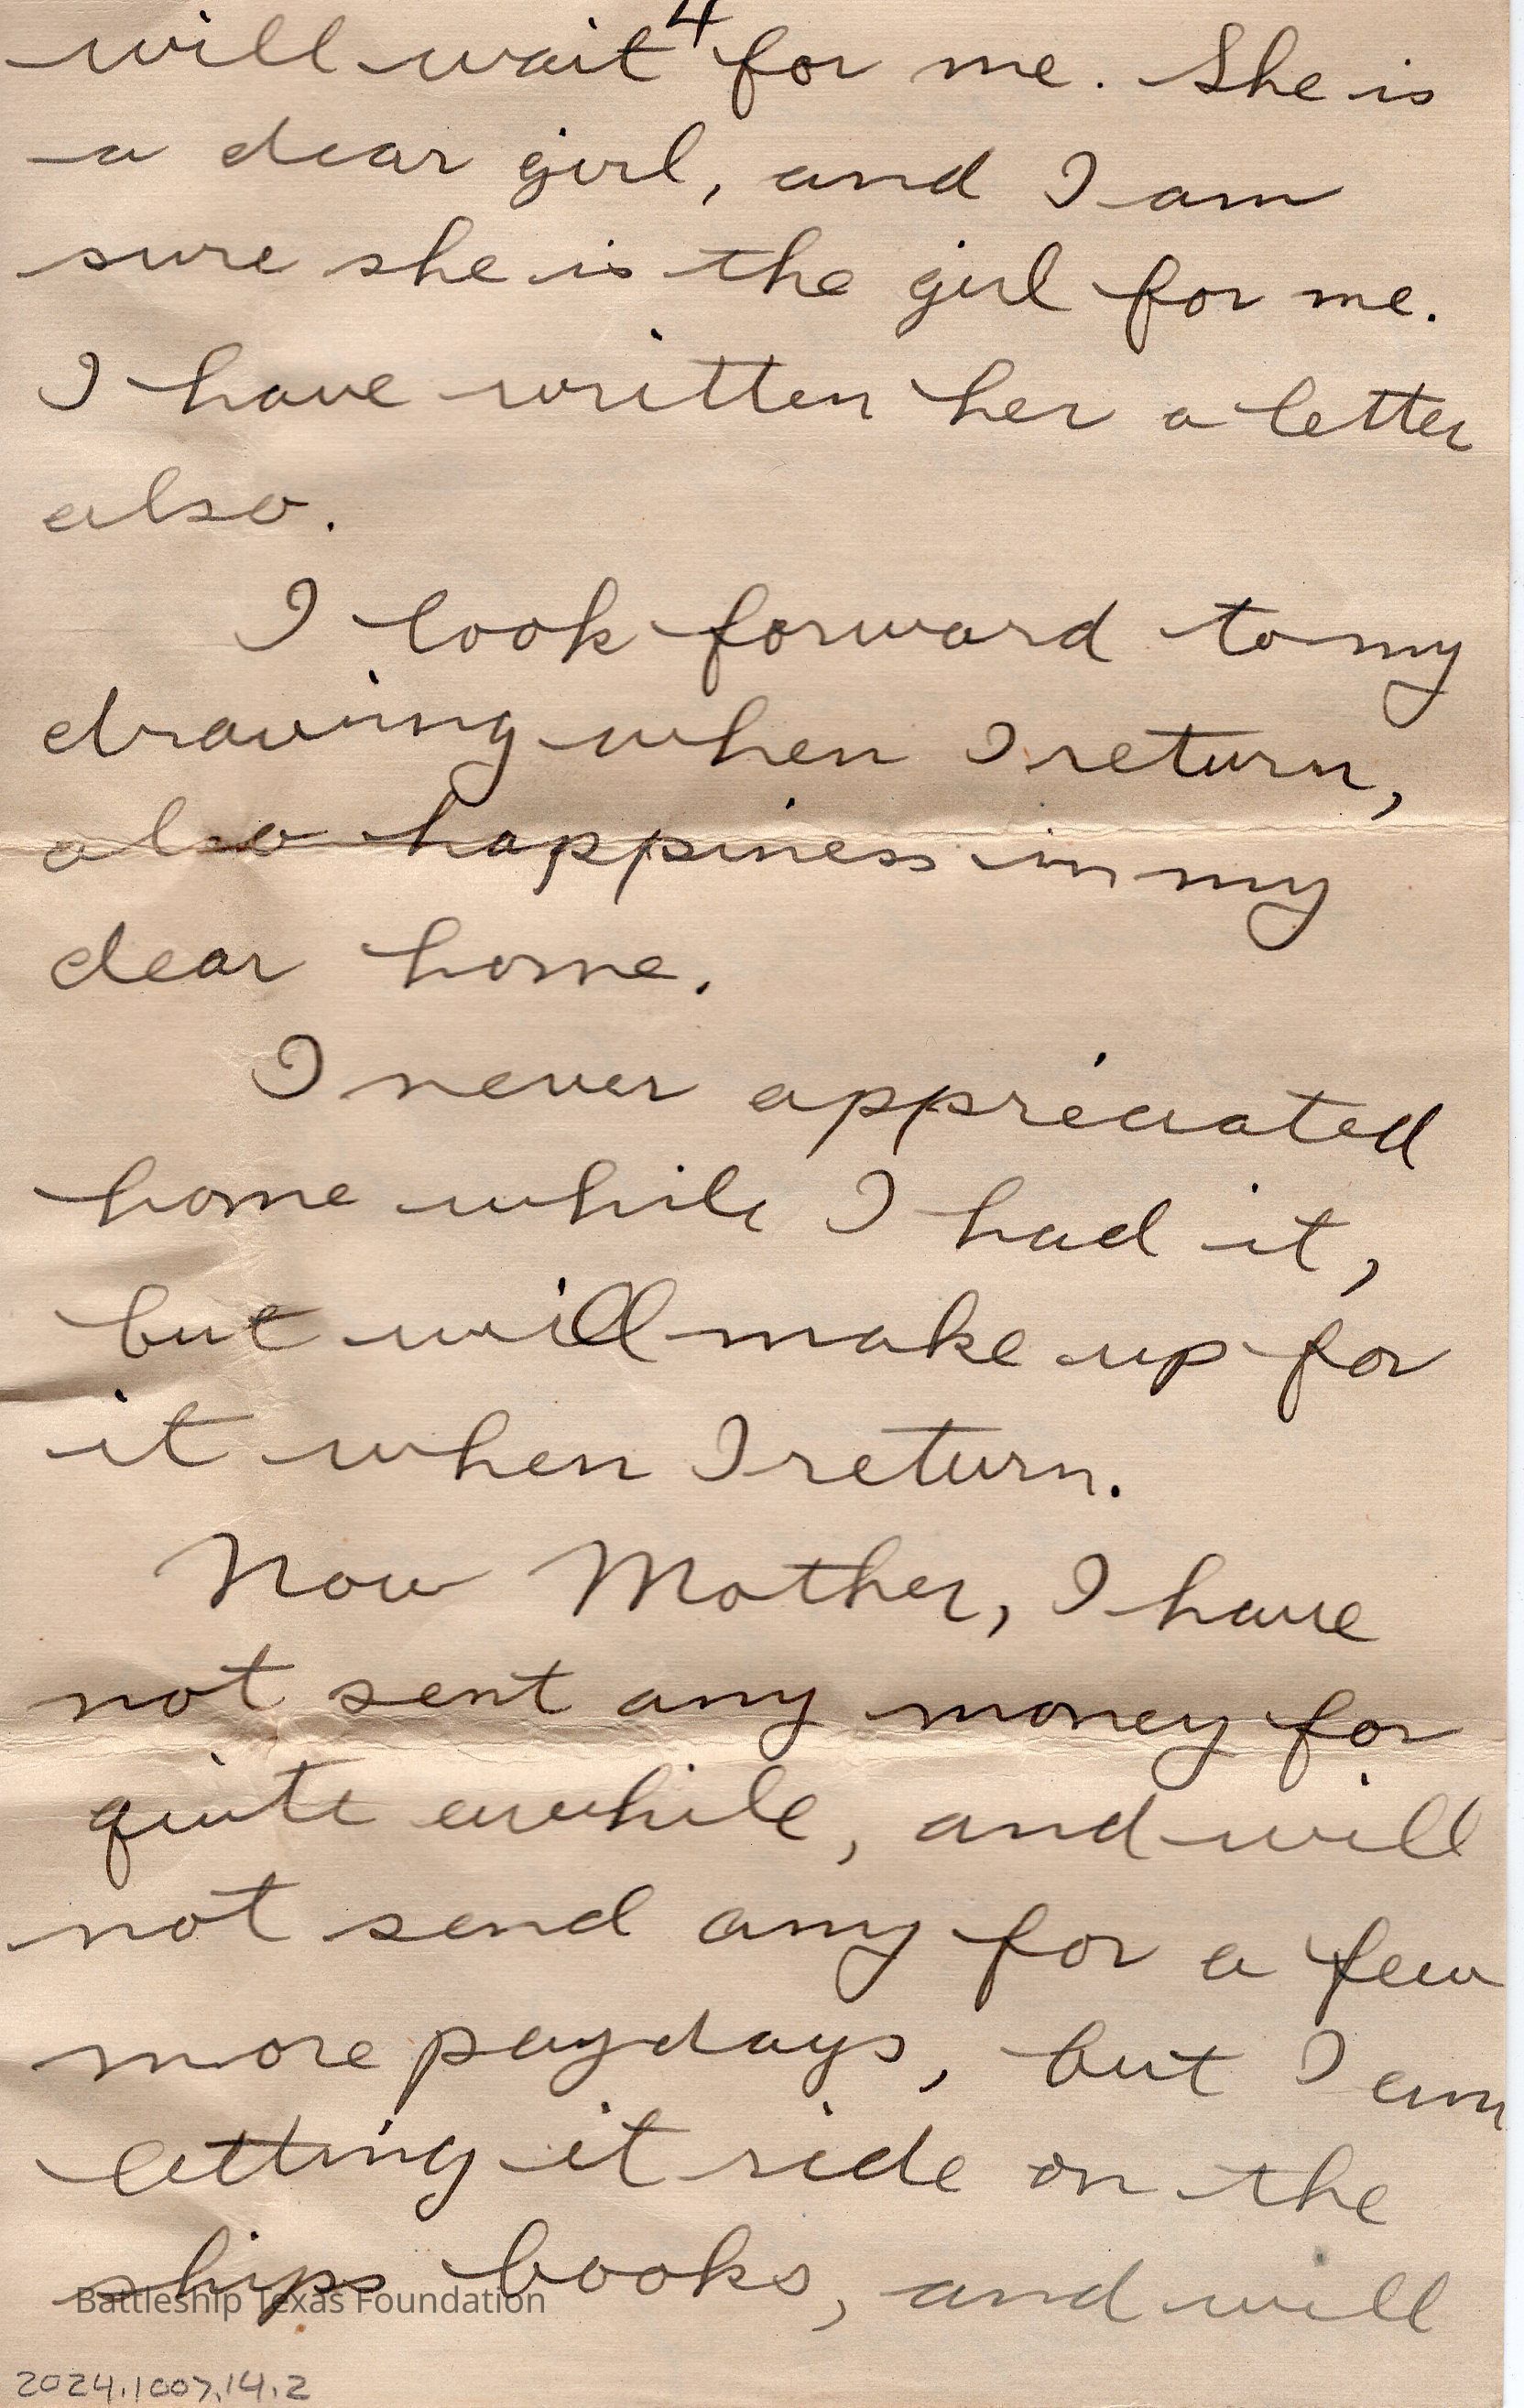 4
will wait for me. She is
a dear girl, and I am
sure she is the girl for me.
I have written her a letter
also.
I look forward to my
drawing when I return,
also happiness in my
dear home.
I never appreciated
home while I had it,
but will make up for
it when I return.
Now Mother, I have
not sent any money for
quite awhile, and will
not send any for a few
more paydays, but I am
letting it ride on the
ships books, and will
Battleship Texas Foundation
2024.1007.14.2